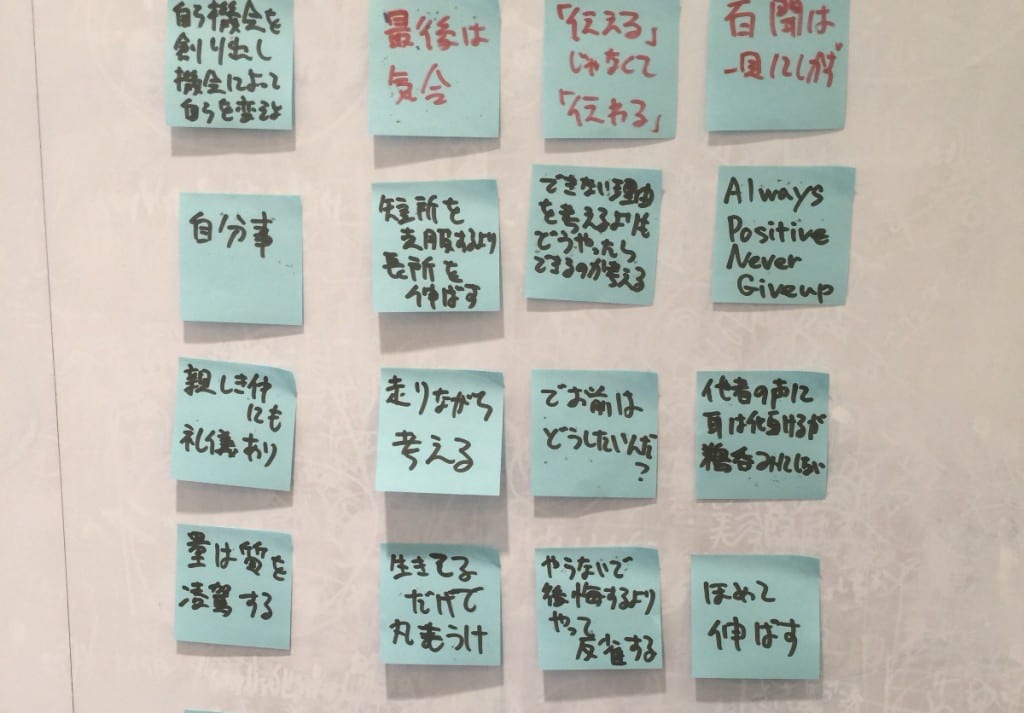 自ら機会を
創り出し
機会によって
自らを変えよ
最後は
気合
「伝える」
じゃなくて
「伝わる」
百聞は
一見にしかず
自分事
短所を
克服するより
長所を
伸ばす
できない理由
を考えるよりも
どうやったら
できるのか考える
Always
Positive
Never
Giveup
親しき仲
にも
礼儀あり
走りながら
考える
でお前は
どうしたいんだ
?
他者の声に
耳は傾けるが
鵜呑みにしない
量は質を
凌駕する
生きてる
だけで
丸もうけ
やらないで
後悔するより
やって
反省する
ほめて
伸ばす